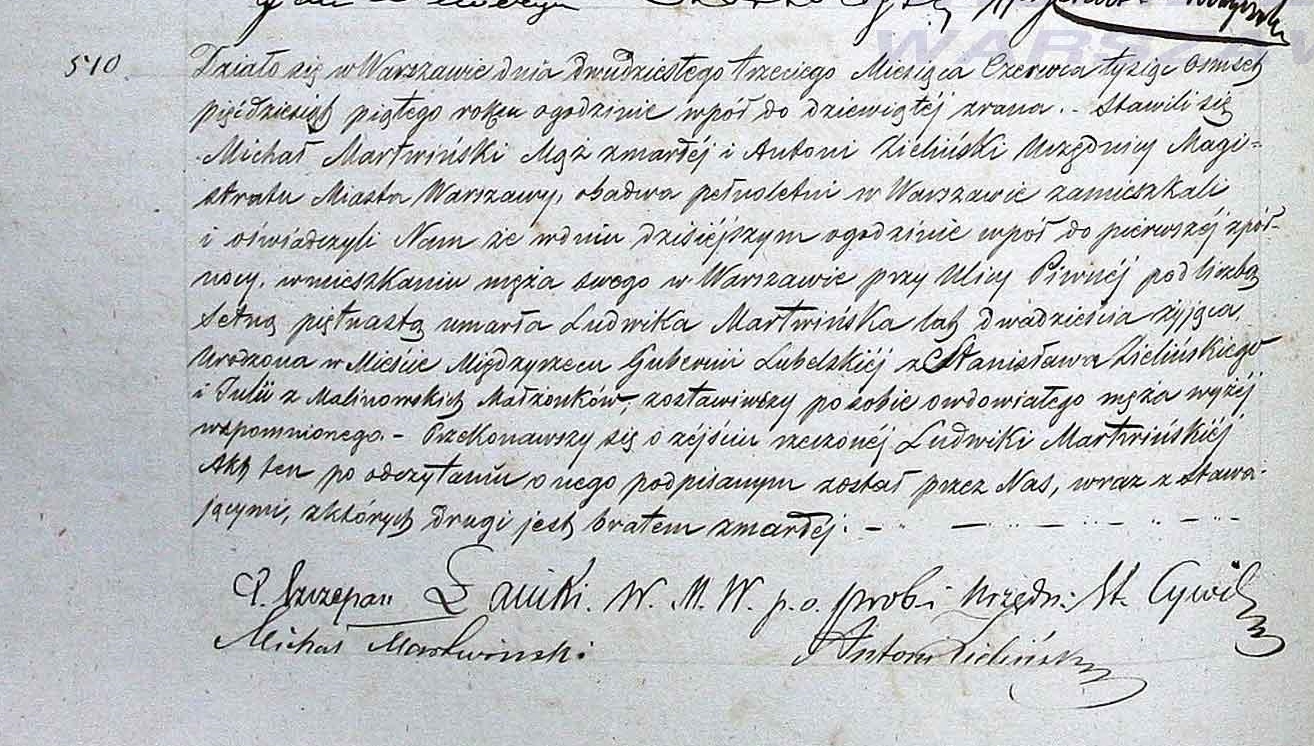 WARSZAW
540.
Działo się w Warszawie dnia Dwudziestego trzeciego Miesiąca Czerwca tysiąc Ośmset
pięćdziesiąt piątego roku o godzinie wpół do dziewiątéj zrana. - Stawili się
Michał Martwiński Mąż zmarłéj i Antoni Zieliński Urzędnicy Magi=
stratu Miasta Warszawy, obadwa pełnoletni w Warszawie zamieszkali
i oświadczyli Nam że w dniu dzisiéjszym o godzinie wpół do pierwszéj z pół-
nocy, w mieszkaniu męża swego w Warszawie przy Ulicy Piwnéj pod liczbą
Setną piętnastą umarła Ludwika Martwińska lat dwadzieścia żyjąca,
Urodzona w Mieście Międzyrzecu Gubernii Lubelskiéj z Stanisława Zielińskiego
i Julii z Malinowskich Małżonków, zostawiwszy po sobie owdowiałego męża wyżéj
wspomnionego. - Przekonawszy się o zejściu rzeczonéj Ludwiki Martwińskiéj
Akt ten po odczytaniu onego podpisanym został przez Nas, wraz z Stawa-
jącymi, z których drugi jest bratem zmarłéj. -
Szczepan W. M. W. p. o. prob. i Urzędn: St. Cywil
Michał Martwiński. Antoni Zieliński